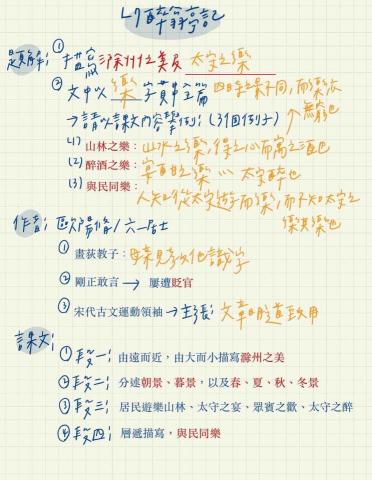 L7 醉翁亭記
題解：① 描寫滁州之美及太守之樂
② 文中以樂字貫串全篇 四時之景不同，而樂亦無窮也
→請以課文內容舉例：(3個例子)
(1) 山林之樂：山水之樂，得之心而寓之酒也
(2) 醉酒之樂：宴酣之樂⋯太守醉也
(3) 與民同樂：人知從太守遊而樂，而不知太守之樂其樂也
作者：歐陽脩/六一居士
① 畫荻教子：母親教他識字
② 剛正敢言 → 屢遭貶官
③ 宋代古文運動領袖 → 主張：文章明道致用
課文：
① 段一：由遠而近，由大而小描寫滁州之美
② 段二：分述朝景、暮景，以及春、夏、秋、冬景
③ 段三：居民遊樂山林、太守之宴、眾賓之歡、太守之醉
④ 段四：層遞描寫，與民同樂